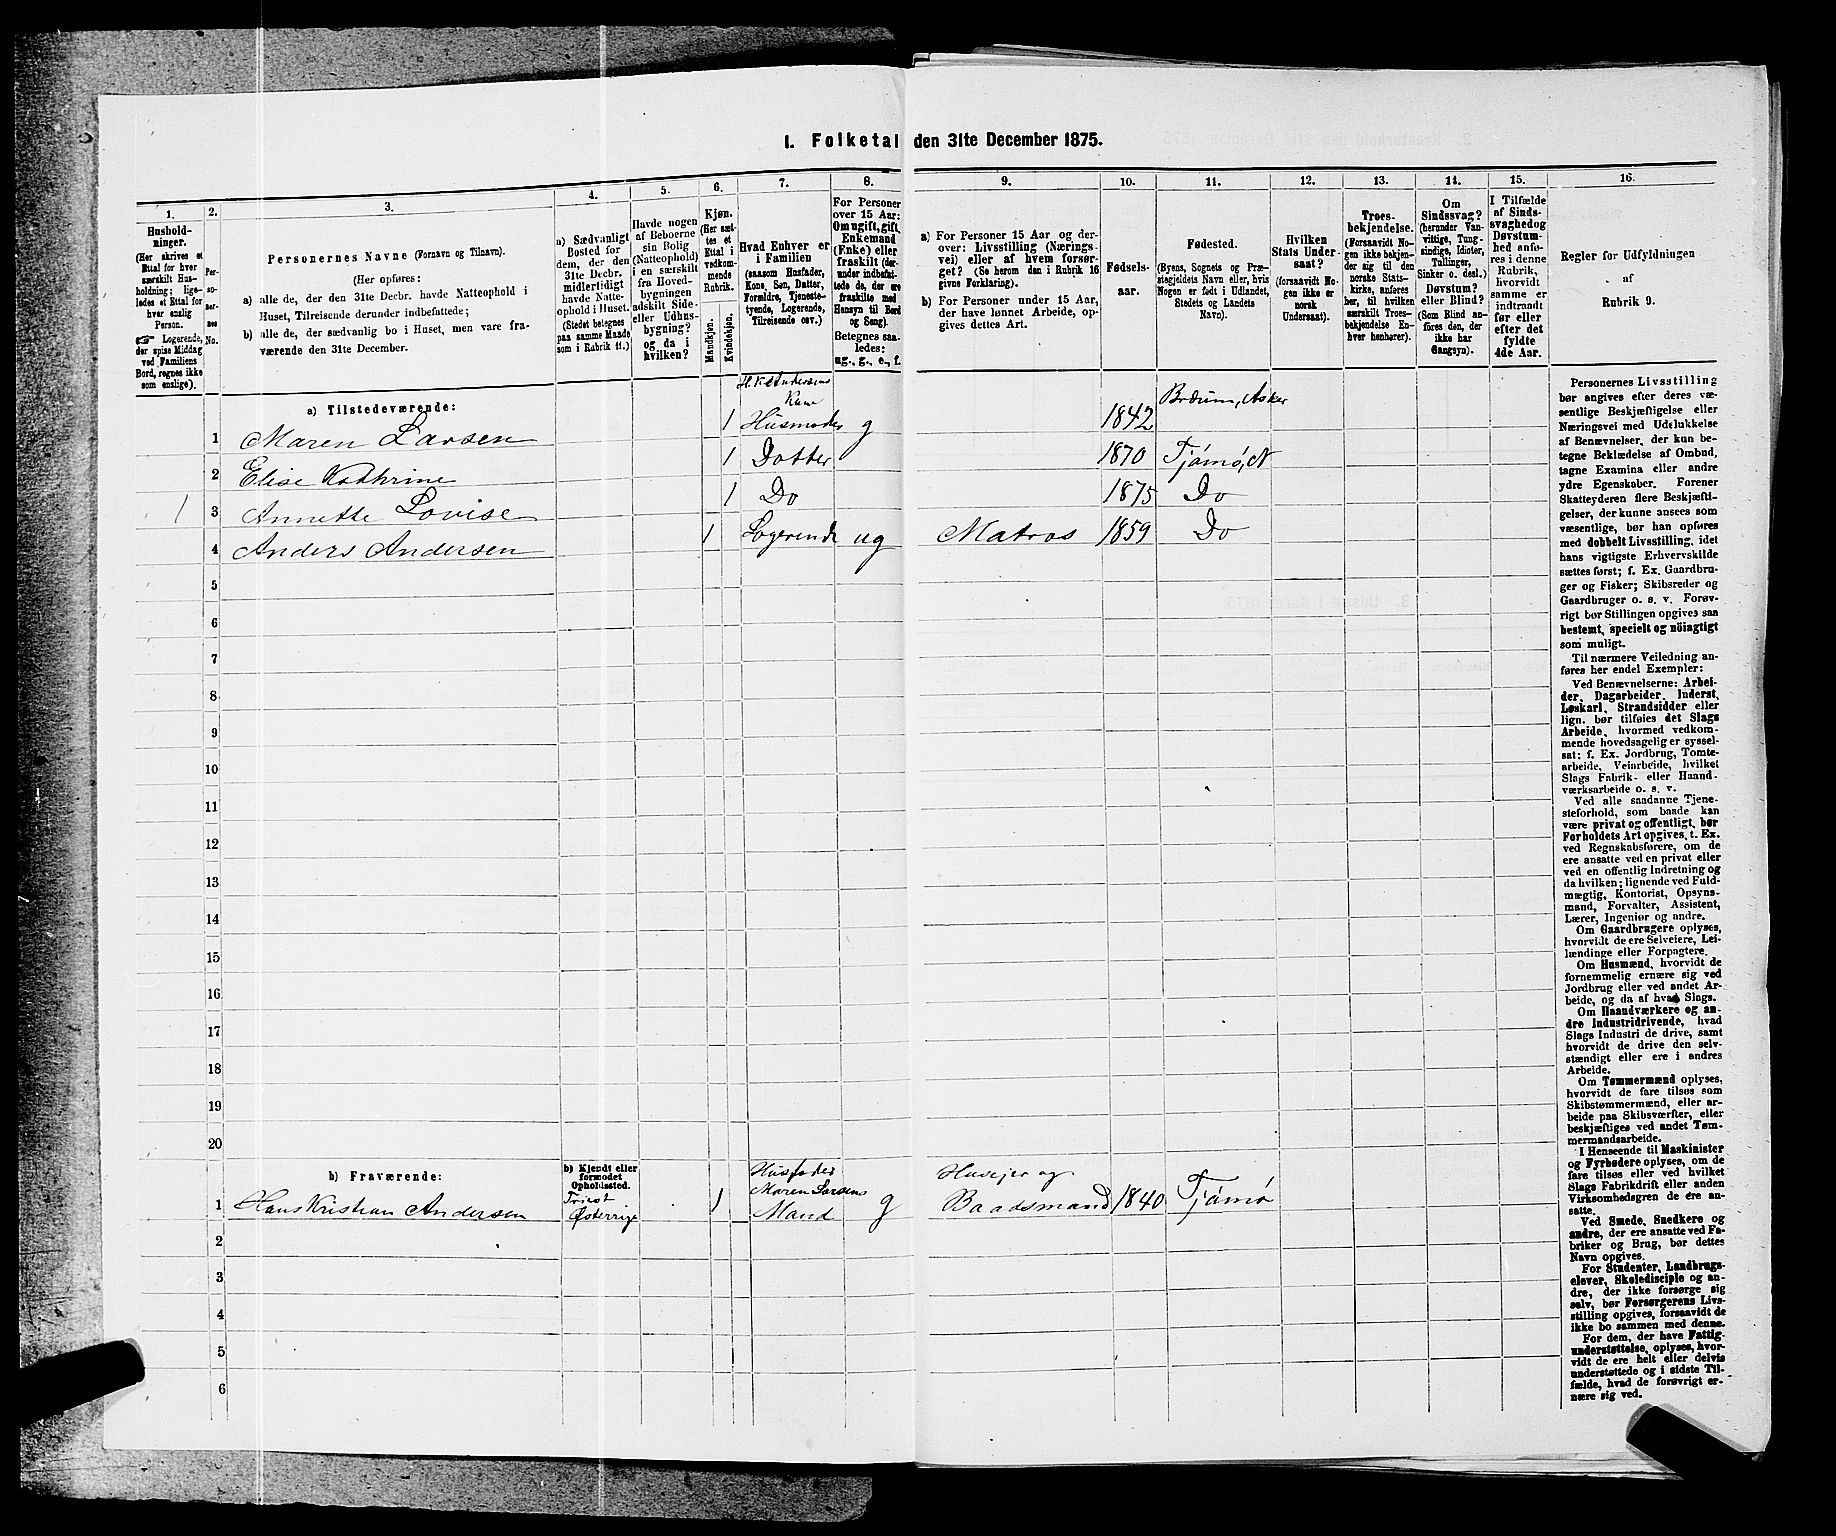 I. Folketal den 31te December 1875.
1.
Hushold-
ninger.
(Her skrives et
Ettal for hver
særskilt Hus-
holdning; lige-
ledes et Ettal for
hver enslig
Person.
☞ Logerende,
der spise Middag
ved Familiens
Bord, regnes ikke
som enslige).
2.
Per-
so-
ner-
nes
No.
3.
Personernes Navne (Fornavn og Tilnavn).
(Her opføres:
a) alle de, der den 31te Decbr. havde Natteophold i
Huset, Tilreisende derunder indbefattede;
b) alle de, der sædvanlig bo i Huset, men vare fra-
værende den 31te December.
4.
a) Sædvanligt
Bosted for
dem, der den
31te Decbr.
midlertidigt
havde Natte-
ophold i Huset.
(Stedet betegnes
paa samme Maade
som i Rubrik 11.)
5.
Havde nogen
af Beboerne
sin Bolig
(Natteophold)
i en særskilt
fra Hoved-
bygningen
adskilt Side-
eller Udhus-
bygning?
og da i
hvilken?
6.
Kjøn.
(Her sæt-
tes et
Ettal i
vedkom-
mende
Rubrik.
Mandkjøn.
Kvindekjøn.
7.
Hvad Enhver er
i Familien
(saasom Husfader,
Kone, Søn, Datter,
Forældre, Tjeneste-
tyende, Logerende,
Tilreisende osv.)
8.
For Personer
over 15 Aar:
Om ugift, gift,
Enkemand
(Enke) eller
fraskilt (der-
under indbefat-
tede de, der ere
fraskilte med
Hensyn til Bord
og Seng).
Betegnes saa-
ledes:
ug., g., e., f.
9.
a) For Personer 15 Aar og der-
over: Livsstilling (Nærings-
vei) eller af hvem forsør-
get? (Se herom den i Rubrik 16
givne Forklaring).
b) For Personer under 15 Aar,
der have lønnet Arbeide, op-
gives dettes Art.
10.
Fødsels-
aar.
11.
Fødested.
(Byens, Sognets og Præ-
stegjeldets Navn eller, hvis
Nogen er født i Udlandet,
Stedets og Landets
Navn).
12.
Hvilken
Stats Under-
saat?
(forsaavidt No-
gen ikke er
norsk
Undersaat).
13.
Troes-
bekjendelse.
(Forsaavidt No-
gen ikke bekjen-
der sig til den
norske Stats-
kirke, anføres
her, til hvilken
særskilt Troes-
bekjendelse En-
hver henhører).
14.
Om
Sindssvag?
(herunder Van-
vittige, Tung-
sindige, Idioter,
Tullinger,
Sinker o. desl.)
Døvstum?
eller Blind?
(Som Blind an-
føres den, der
ikke har
Gangsyn).
15.
I Tilfælde
af Sinds-
svaghed og
Døvstum-
hed anfø-
res i denne
Rubrik,
hvorvidt
samme er
indtraadt
før eller
efter det
fyldte
4de Aar.
16.
Regler for Udfyldningen
af
Rubrik 9.
a) Tilstedeværende:
H. K. Andersens
Kone
Bærum, Asker
1 Maren Larsen 1 Husmoder g 1842
2 Elise Kathrine 1 Datter 1870 Tjømø, N
1 3 Annette Lovise 1 Do 1875 Do
4 Anders Andersen 1 Logerende ug Matros 1859 Do
5
6
7
8
9
10
11
12
13
14
15
16
17
18
19
20
b) Fraværende:
b) Kjendt eller
formodet
Opholdssted.
Husfader
Maren Larsens
Husejer og
Triest
1 Hans Kristian Andersen Østerrige 1 Mand g Baadsmand 1840 Tjømø
2
3
4
5
6
Personernes Livsstilling
bør angives efter deres væ-
sentlige Beskjæftigelse eller
Næringsvei med Udelukkelse
af Benævnelser, der kun be-
tegne Beklædelse af Ombud,
tagne Examina eller andre
ydre Egenskaber. Forener
Skatteyderen flere Beskjæfti-
gelser, der kunne ansees som
væsentlige, bør han opføres
med dobbelt Livsstilling, idet
hans vigtigste Erhvervskilde
sættes først; f. Ex. Gaardbru-
ger og Fisker; Skibsreder og
Gaardbruger o. s. v. Forøv-
rigt bør Stillingen opgives saa
bestemt, specielt og nöiagtigt
som muligt.
Til nærmere Veiledning an-
føres her endel Exempler:
Ved Benævnelserne: Arbei-
der, Dagarbeider, Inderst,
Løskarl, Strandsidder eller
lign. bør tilføies det Slags
Arbeide, hvormed vedkom-
mende hovedsagelig er syssel-
sat; f. Ex. Jordbrug, Tomte-
arbeide, Veiarbeide, hvilket
Slags Fabrik- eller Haand-
værksarbeide o. s. v.
Ved alle saadanne Tjene-
steforhold, som baade kan
være privat og offentligt, bør
Forholdets Art opgives, t. Ex.
ved Regnskabsførere, om de
ere ansatte ved en privat eller
ved en offentlig Indretning og
da hvilken; lignende ved Fuld-
mægtig, Kontorist, Opsyns-
mand, Forvalter, Assistent,
Lærer, Ingeniør og andre.
Om Gaardbrugere oplyses,
hvorvidt de ere Selveiere, Lei-
lændinge eller Forpagtere.
Om Husmænd, hvorvidt de
fornemmelig ernære sig ved
Jordbrug eller ved andet Ar-
beide, og da af hvad Slags.
Om Haandværkere og an-
dre Industridrivende, hvad
Slags Industri de drive, samt
hvorvidt de drive den selv-
stændigt eller ere i andres
Arbeide.
Om Tømmermænd oplyses,
hvorvidt de fare tilsøs som
Skibstømmermænd, eller ar-
beide paa Skibsværfter, eller
beskjæftiges ved andet Tøm-
mermandsarbeide.
I Henseende til Maskinister
og Fyrbødere oplyses, om de
fare tilsøs eller ved hvilket
Slags Fabrikdrift eller anden
Virksomhedsgren de ere an-
satte.
Ved Smede, Snedkere og
andre, der ere ansatte ved Fa-
briker og Brug, bør dettes
Navn opgives.
For Studenter, Landbrugs-
elever, Skoledisciple og an-
dre, der ikke forsørge sig
selv, bør Forsørgerens Livs-
stilling opgives, forsaavidt de
ikke bo sammen med denne.
For dem, der have Fattig-
understøttelse, oplyses, hvor-
vidt de ere helt eller delvis
understøttede og i sidste Til-
fælde, hvad de forøvrigt er-
nære sig ved.